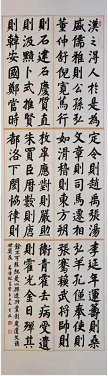 漢之得人於是為
盛儒雅則公孫弘
董仲舒倪寬篤行
則石建石慶質直
則汲黯卜式推賢
則韓安國鄭當時
定令則趙禹張湯
文章則司馬遷相
如滑稽則東方朔
枚皋應對則嚴助
朱買臣曆數則唐
都洛下閎協律則
李延年運籌則桑
弘羊奉使則
張騫蘇武將帥則
衛青霍去病受遺
則霍光金日磾其
餘不可勝紀是以興造功業制度遺文後
世莫及